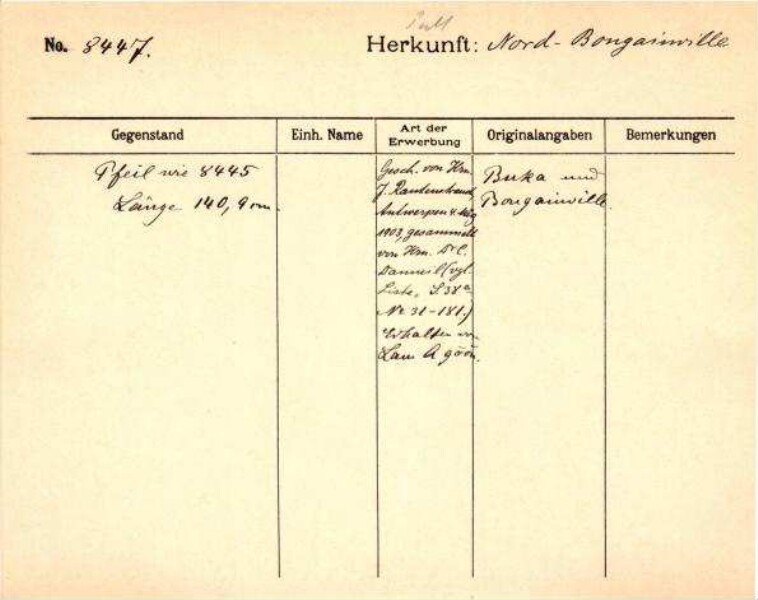 No. 8447.
Herkunft: Nord-Bougainville
Gegenstand
Einh. Name
Art der Erwerbung
Originalangaben
Bemerkungen
Pfeil wie 8445
Länge 140,9 cm.
Gesch. von Hrn.
J. Rautenstrauch,
Antwerpen 4. Aug
1903, gesammelt
von Hrn. Dr. C.
Danneil (vgl.
Liste, S. 38a
No 31-181.)
Erhalten von
Lam A góón.
Buka und
Bougainville.